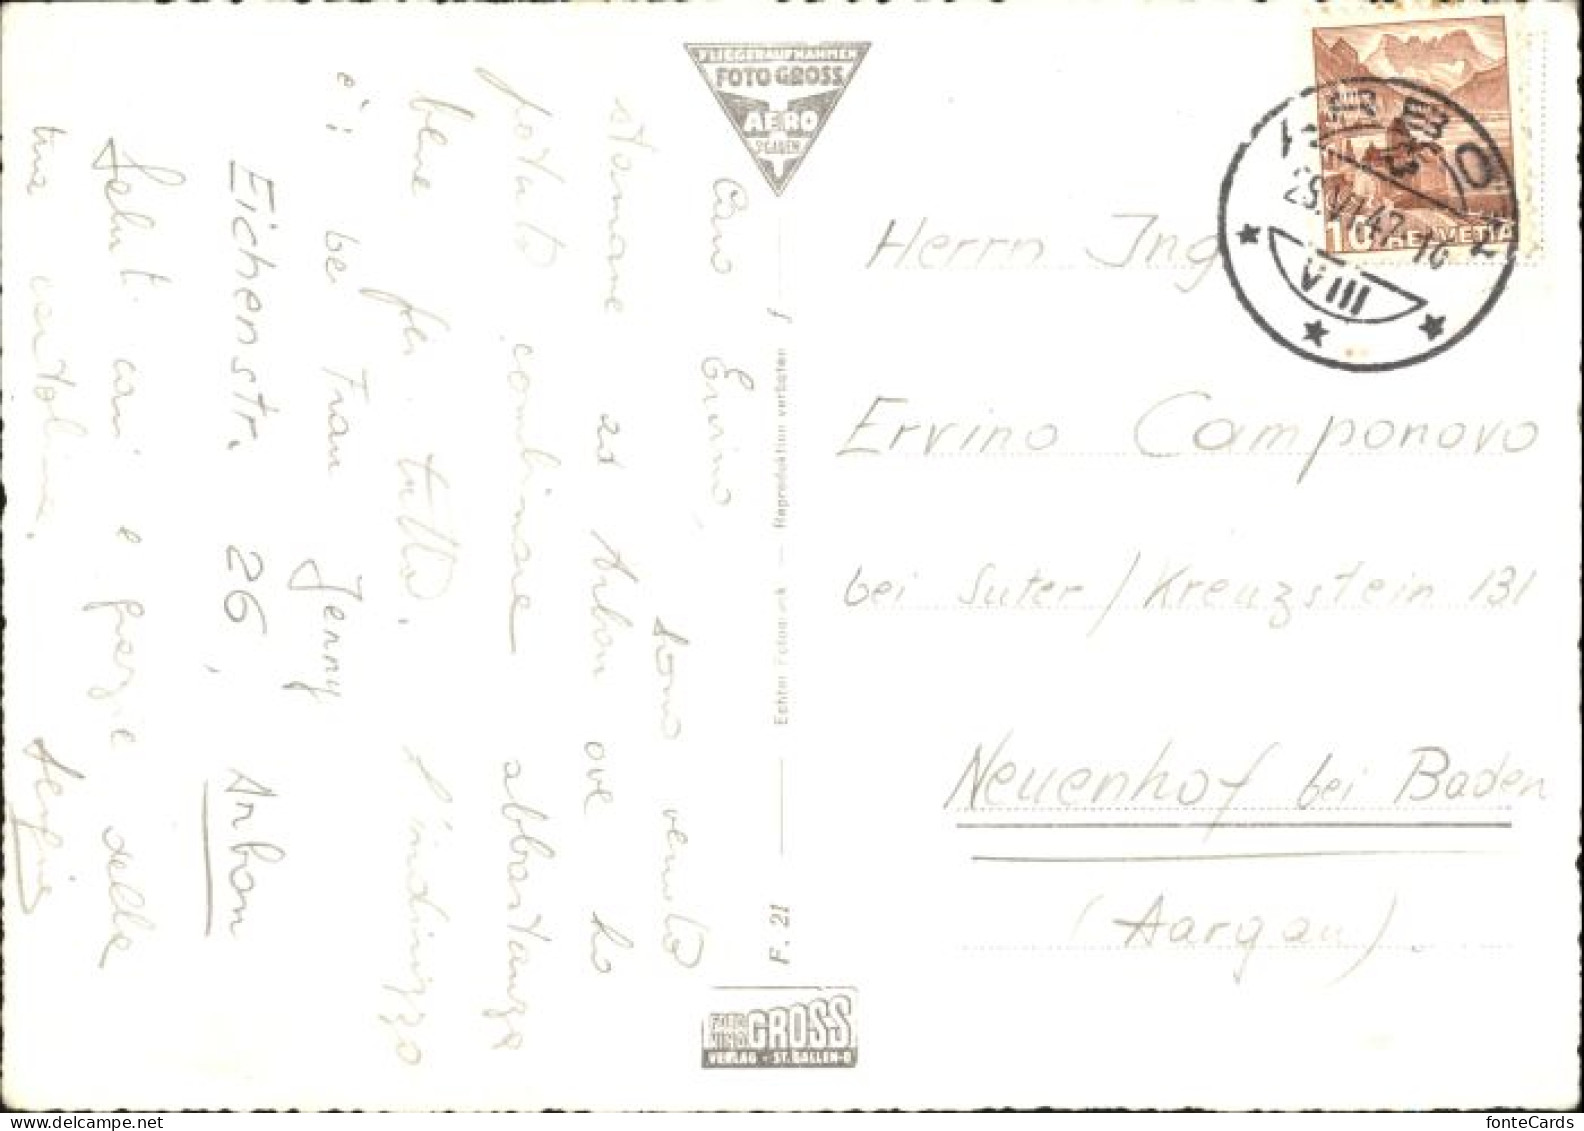 Caro Ervino,
sono venuto
stamane ad Arbon ove ho
potuto combinare abbastanza
bene per tutto. l'indirizzo
è: bei Frau Jenny
Eichenstr. 26, Arbon
Salut. cari e grazie della
tua cartolina.
FLIEGERAUFNAHMEN
FOTO GROSS
AERO
ST. GALLEN
F. 21 Echter Fotodruck — Reproduktion verboten
FOTO GROSS
VERLAG • ST. GALLEN-O
ARBON
VIII
10 HELVETIA
Herrn Ing
Ervino Camponovo
bei Suter / Kreuzstein 131
Neuenhof bei Baden
(Aargau).
fonteCards